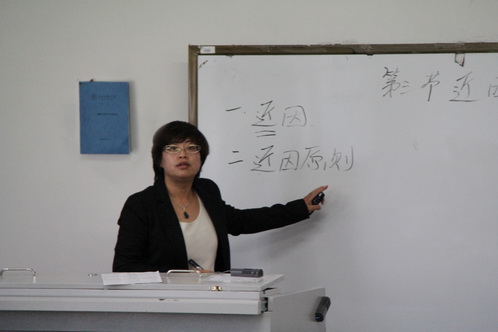 第三节 近因
一. 近因
二 近因原则